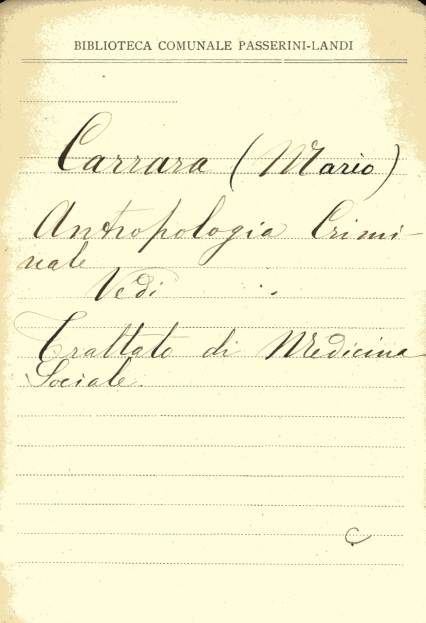 BIBLIOTECA COMUNALE PASSERINI-LANDI
Carrara (Mario)
Antropologia Crimi-
nale
Vedi
Trattato di Medicina
Sociale.
C